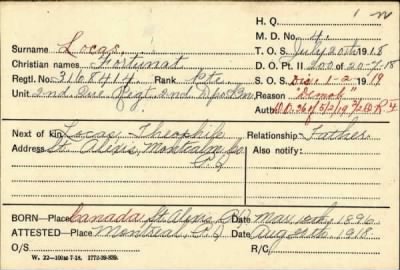 H. Q.
M. D. No. 4.
Surname Locas,
T. O. S. July 20th 1918
Christian names Fortunat
D. O. Pt. II 200 of 20-7-18
Regtl. No. 3168414. Rank Pte.
S. O. S. Dis. 1-2-1919
Unit 2nd. Que Regt. 2nd Dpo Bn.
Reason "Demob"
Auth. D.O. 36 of 5/2/19
Next of kin Locas, Theophile
Relationship Father
Address St. Alexis, Montcalm Co
Also notify:
P.Q
BORN—Place Canada St Alexis P.Q Date Mar. 1896
ATTESTED—Place Montreal, P.Q Date Aug. 1918.
O/S
R/C
W. 22—100M-7-18. 1772-39-839.